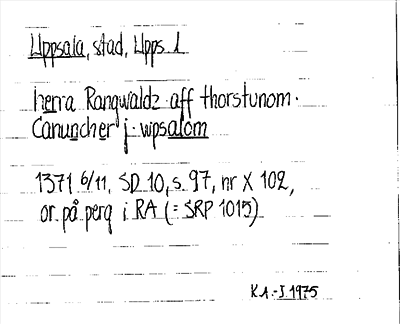 Uppsala, stad, Upps l
herra Rangwaldz aff thorstunom.
Canuncher j. wpsalom
1371 6/11, SD 10, s. 97, nr X 102,
or. på perg i RA (= SRP 1015)
K.A.-S. 1975